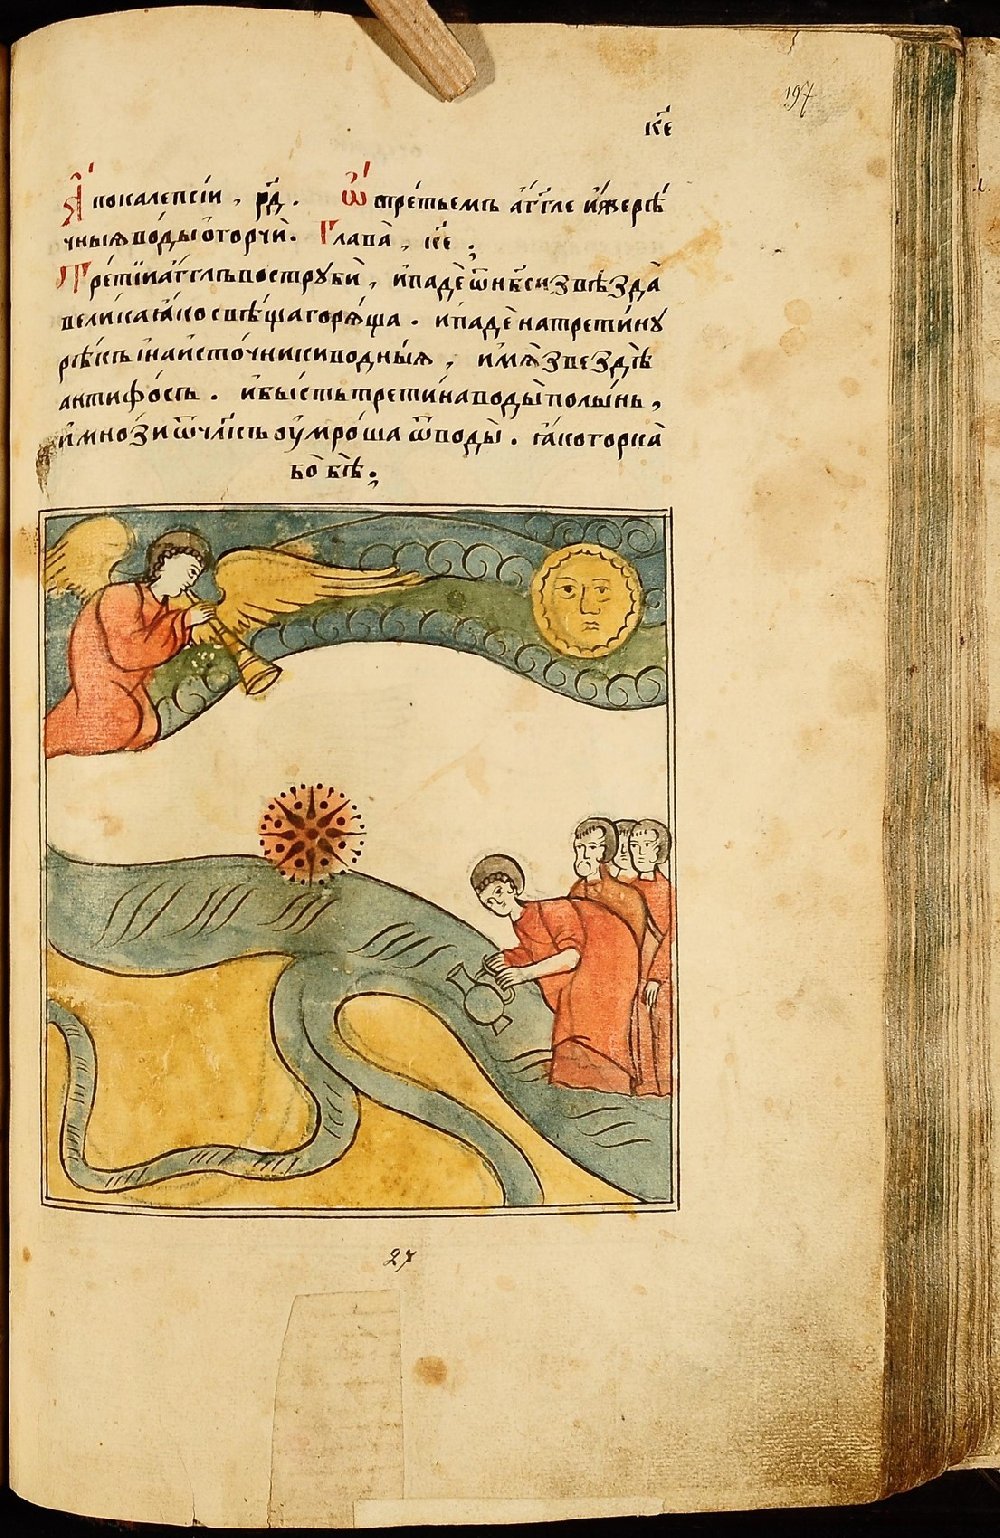 197
к҃е
Апокалепсїи, р҃д. Ѿ третьемъ а҆́гг҃ле и҆́же рѣ́
чныѧ во́ды ѡ҆горчѝ. Глава̀, к҃е.
Тре́тїи а҆́гг҃лъ вострꙋбѝ, и҆ падѐ ѿ нб҃си ѕвѣзда̀
вели́ка ꙗ҆́ко свѣща̀ горѧ́ща. и҆ падѐ на трети́нꙋ
рѣ́къ и҆ на и҆сто́чники во́дныѧ, и҆́мѧ ѕвездѣ̀
антифо́съ. и҆ бы́сть трети́на воды̀ полы́нь,
и҆ мно́ѕи ѿ чл҃къ ᲂу҆мро́ша ѿ воды̀. ꙗ҆́ко горка̀
бѣ.
27